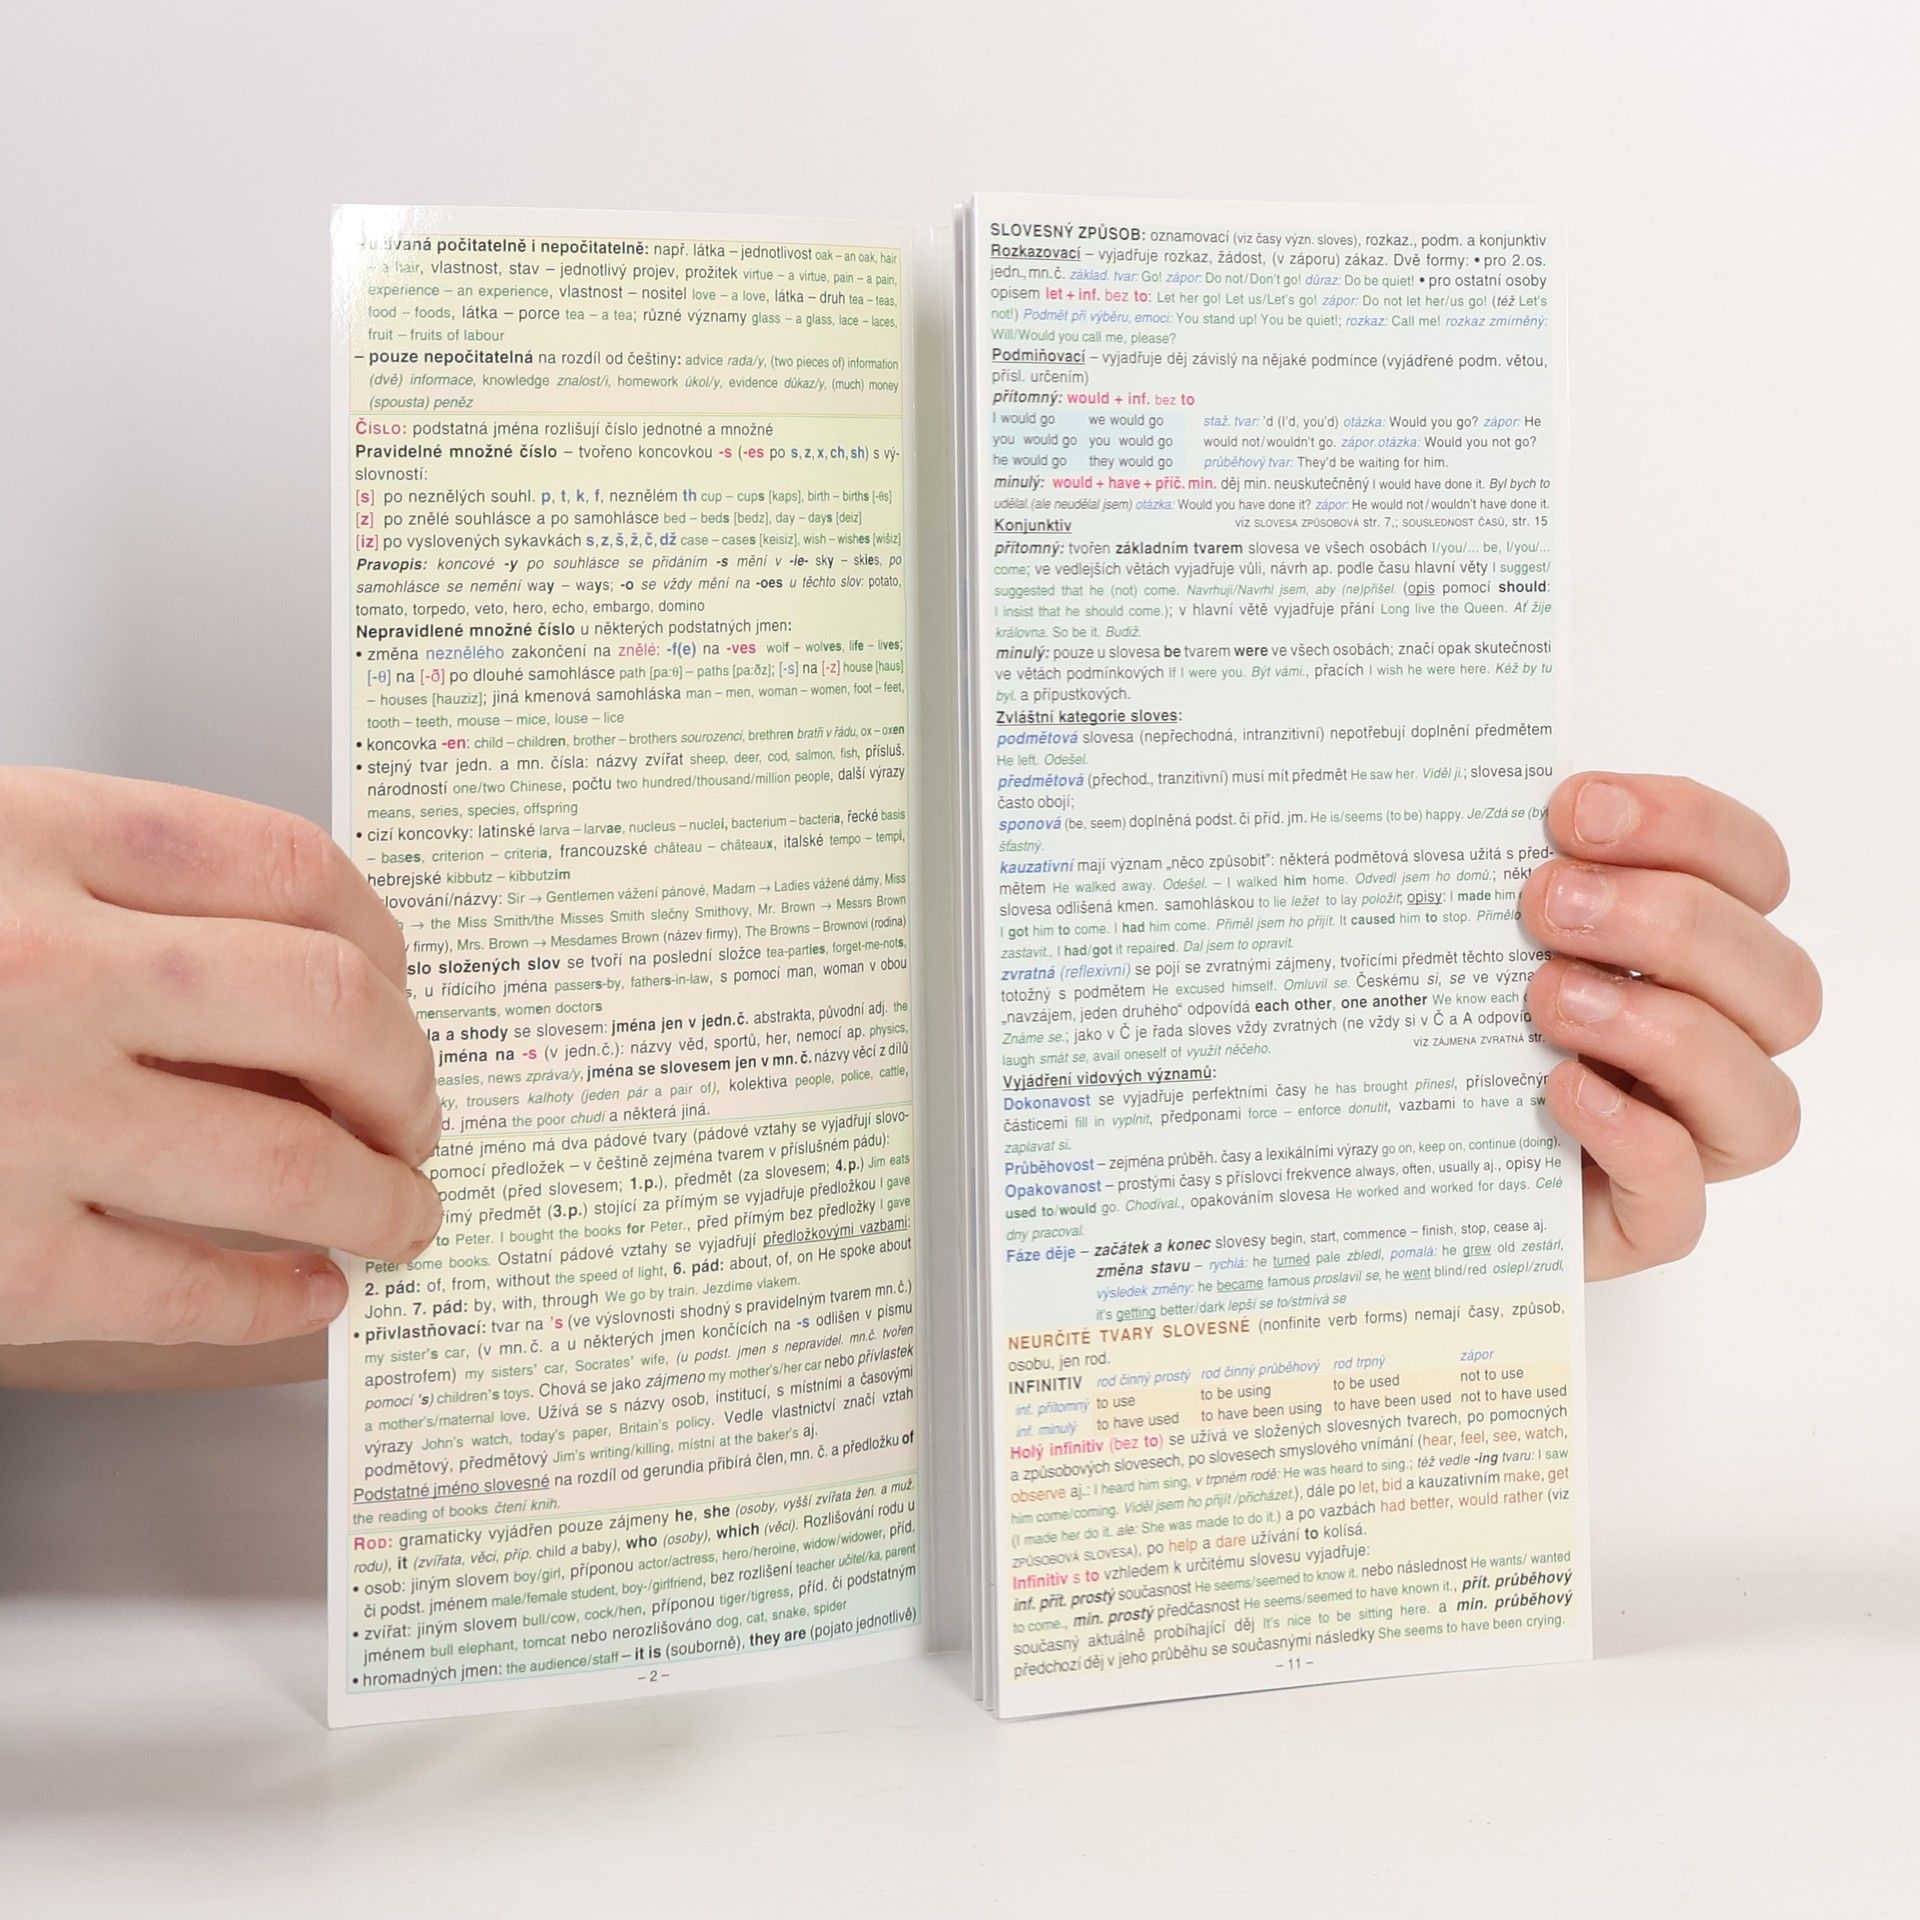 užívaná počitatelně i nepočitatelně: např. látka – jednotlivost oak – an oak, hair
– a hair, vlastnost, stav – jednotlivý projev, prožitek virtue – a virtue, pain – a pain,
experience – an experience, vlastnost – nositel love – a love, látka – druh tea – teas,
food – foods, látka – porce tea – a tea; různé významy glass – a glass, lace – laces,
fruit – fruits of labour
– pouze nepočitatelná na rozdíl od češtiny: advice rada/y, (two pieces of) information
(dvě) informace, knowledge znalost/i, homework úkol/y, evidence důkaz/y, (much) money
(spousta) peněz
ČÍSLO: podstatná jména rozlišují číslo jednotné a množné
Pravidelné množné číslo – tvořeno koncovkou -s (-es po s, z, x, ch, sh) s vý-
slovností:
[s] po neznělých souhl. p, t, k, f, neznělém th cup – cups [kaps], birth – births [-θs]
[z] po znělé souhlásce a po samohlásce bed – beds [bedz], day – days [deiz]
[iz] po vyslovených sykavkách s, z, š, ž, č, dž case – cases [keisiz], wish – wishes [wišiz]
Pravopis: koncové -y po souhlásce se přidáním -s mění v -ie- sky – skies, po
samohlásce se nemění way – ways; -o se vždy mění na -oes u těchto slov: potato,
tomato, torpedo, veto, hero, echo, embargo, domino
Nepravidlené množné číslo u některých podstatných jmen:
• změna neznělého zakončení na znělé: -f(e) na -ves wolf – wolves, life – lives;
[-θ] na [-ð] po dlouhé samohlásce path [pa:θ] – paths [pa:ðz]; [-s] na [-z] house [haus]
– houses [hauziz]; jiná kmenová samohláska man – men, woman – women, foot – feet,
tooth – teeth, mouse – mice, louse – lice
• koncovka -en: child – children, brother – brothers sourozenci, brethren bratři v řádu, ox – oxen
• stejný tvar jedn. a mn. čísla: názvy zvířat sheep, deer, cod, salmon, fish, přísluš.
národností one/two Chinese, počtu two hundred/thousand/million people, další výrazy
means, series, species, offspring
• cizí koncovky: latinské larva – larvae, nucleus – nuclei, bacterium – bacteria, řecké basis
– bases, criterion – criteria, francouzské château – châteaux, italské tempo – tempi,
hebrejské kibbutz – kibbutzim
lovování/názvy: Sir → Gentlemen vážení pánové, Madam → Ladies vážené dámy, Miss
→ the Miss Smith/the Misses Smith slečny Smithovy, Mr. Brown → Messrs Brown
firmy), Mrs. Brown → Mesdames Brown (název firmy), The Browns – Brownovi (rodina)
slo složených slov se tvoří na poslední složce tea-parties, forget-me-nots,
s, u řídícího jména passers-by, fathers-in-law, s pomocí man, woman v obou
menservants, women doctors
la a shody se slovesem: jména jen v jedn.č. abstrakta, původní adj. the
jména na -s (v jedn.č.): názvy věd, sportů, her, nemocí ap. physics,
easles, news zpráva/y, jména se slovesem jen v mn. č. názvy věcí z dílů
ky, trousers kalhoty (jeden pár a pair of), kolektiva people, police, cattle,
d. jména the poor chudí a některá jiná.
tatné jméno má dva pádové tvary (pádové vztahy se vyjadřují slovo-
pomocí předložek – v češtině zejména tvarem v příslušném pádu):
podmět (před slovesem; 1.p.), předmět (za slovesem; 4.p.) Jim eats
ímý předmět (3.p.) stojící za přímým se vyjadřuje předložkou I gave
to Peter. I bought the books for Peter., před přímým bez předložky I gave
Peter some books. Ostatní pádové vztahy se vyjadřují předložkovými vazbami:
2. pád: of, from, without the speed of light, 6. pád: about, of, on He spoke about
John. 7. pád: by, with, through We go by train. Jezdíme vlakem.
• přivlastňovací: tvar na 's (ve výslovnosti shodný s pravidelným tvarem mn.č.)
my sister's car, (v mn. č. a u některých jmen končících na -s odlišen v písmu
apostrofem) my sisters' car, Socrates' wife, (u podst. jmen s nepravidel. mn.č. tvořen
pomocí 's) children's toys. Chová se jako zájmeno my mother's/her car nebo přívlastek
a mother's/maternal love. Užívá se s názvy osob, institucí, s místními a časovými
výrazy John's watch, today's paper, Britain's policy. Vedle vlastnictví značí vztah
podmětový, předmětový Jim's writing/killing, místní at the baker's aj.
Podstatné jméno slovesné na rozdíl od gerundia přibírá člen, mn. č. a předložku of
the reading of books čtení knih.
ROD: gramaticky vyjádřen pouze zájmeny he, she (osoby, vyšší zvířata žen. a muž.
rodu), it (zvířata, věci, příp. child a baby), who (osoby), which (věci). Rozlišování rodu u
• osob: jiným slovem boy/girl, příponou actor/actress, hero/heroine, widow/widower, příd.
či podst. jménem male/female student, boy-/girlfriend, bez rozlišení teacher učitel/ka, parent
• zvířat: jiným slovem bull/cow, cock/hen, příponou tiger/tigress, příd. či podstatným
jménem bull elephant, tomcat nebo nerozlišováno dog, cat, snake, spider
• hromadných jmen: the audience/staff – it is (souborně), they are (pojato jednotlivě)
– 2 –
SLOVESNÝ ZPŮSOB: oznamovací (viz časy význ. sloves), rozkaz., podm. a konjunktiv
Rozkazovací – vyjadřuje rozkaz, žádost, (v záporu) zákaz. Dvě formy: • pro 2.os.
jedn., mn.č. základ. tvar: Go! zápor: Do not/Don't go! důraz: Do be quiet! • pro ostatní osoby
opisem let + inf. bez to: Let her go! Let us/Let's go! zápor: Do not let her/us go! (též Let's
not!) Podmět při výběru, emoci: You stand up! You be quiet!; rozkaz: Call me! rozkaz zmírněný:
Will/Would you call me, please?
Podmiňovací – vyjadřuje děj závislý na nějaké podmínce (vyjádřené podm. větou,
přísl. určením)
přítomný: would + inf. bez to
I would go we would go staž. tvar: 'd (I'd, you'd) otázka: Would you go? zápor: He
you would go you would go would not/wouldn't go. zápor.otázka: Would you not go?
he would go they would go průběhový tvar: They'd be waiting for him.
minulý: would + have + příč. min. děj min. neuskutečněný I would have done it. Byl bych to
udělal.(ale neudělal jsem) otázka: Would you have done it? zápor: He would not/wouldn't have done it.
Konjunktiv viz SLOVESA ZPŮSOBOVÁ str. 7,; SOUSLEDNOST ČASŮ, str. 15
přítomný: tvořen základním tvarem slovesa ve všech osobách I/you/... be, I/you/...
come; ve vedlejších větách vyjadřuje vůli, návrh ap. podle času hlavní věty I suggest/
suggested that he (not) come. Navrhuji/Navrhl jsem, aby (ne)přišel. (opis pomocí should:
I insist that he should come.); v hlavní větě vyjadřuje přání Long live the Queen. Ať žije
královna. So be it. Budiž.
minulý: pouze u slovesa be tvarem were ve všech osobách; značí opak skutečnosti
ve větách podmínkových If I were you. Být vámi., přacích I wish he were here. Kéž by tu
byl. a přípustkových.
Zvláštní kategorie sloves:
podmětová slovesa (nepřechodná, intranzitivní) nepotřebují doplnění předmětem
He left. Odešel.
předmětová (přechod., tranzitivní) musí mít předmět He saw her. Viděl ji.; slovesa jsou
často obojí;
sponová (be, seem) doplněná podst. či příd. jm. He is/seems (to be) happy. Je/Zdá se (být
šťastný.
kauzativní mají význam „něco způsobit": některá podmětová slovesa užitá s před-
mětem He walked away. Odešel. – I walked him home. Odvedl jsem ho domů.; někt
slovesa odlišená kmen. samohláskou to lie ležet to lay položit; opisy: I made him
I got him to come. I had him come. Přiměl jsem ho přijít. It caused him to stop. Přimělo
zastavit., I had/got it repaired. Dal jsem to opravit.
zvratná (reflexivní) se pojí se zvratnými zájmeny, tvořícími předmět těchto sloves.
totožný s podmětem He excused himself. Omluvil se. Českému si, se ve význa
„navzájem, jeden druhého" odpovídá each other, one another We know each
Známe se.; jako v Č je řada sloves vždy zvratných (ne vždy si v Č a A odpovíd
laugh smát se, avail oneself of využít něčeho. viz ZÁJMENA ZVRATNÁ str.
Vyjádření vidových významů:
Dokonavost se vyjadřuje perfektními časy he has brought přinesl, příslovečným
částicemi fill in vyplnit, předponami force – enforce donutit, vazbami to have a sw
zaplavat si.
Průběhovost – zejména průběh. časy a lexikálními výrazy go on, keep on, continue (doing).
Opakovanost – prostými časy s příslovci frekvence always, often, usually aj., opisy He
used to/would go. Chodíval., opakováním slovesa He worked and worked for days. Celé
dny pracoval.
Fáze děje – začátek a konec slovesy begin, start, commence – finish, stop, cease aj.
změna stavu – rychlá: he turned pale zbledl, pomalá: he grew old zestárl,
výsledek změny: he became famous proslavil se, he went blind/red oslepl/zrudl,
it's getting better/dark lepší se to/stmívá se
NEURČITÉ TVARY SLOVESNÉ (nonfinite verb forms) nemají časy, způsob,
osobu, jen rod.
INFINITIV rod činný prostý rod činný průběhový rod trpný zápor
inf. přítomný to use to be using to be used not to use
inf. minulý to have used to have been using to have been used not to have used
Holý infinitiv (bez to) se užívá ve složených slovesných tvarech, po pomocných
a způsobových slovesech, po slovesech smyslového vnímání (hear, feel, see, watch,
observe aj.: I heard him sing, v trpném rodě: He was heard to sing.; též vedle -ing tvaru: I saw
him come/coming. Viděl jsem ho přijít /přicházet.), dále po let, bid a kauzativním make, get
(I made her do it. ale: She was made to do it.) a po vazbách had better, would rather (viz
ZPŮSOBOVÁ SLOVESA), po help a dare užívání to kolísá.
Infinitiv s to vzhledem k určitému slovesu vyjadřuje:
inf. přít. prostý současnost He seems/seemed to know it. nebo následnost He wants/ wanted
to come., min. prostý předčasnost He seems/seemed to have known it., přít. průběhový
současný aktuálně probíhající děj It's nice to be sitting here. a min. průběhový
předchozí děj v jeho průběhu se současnými následky She seems to have been crying.
– 11 –